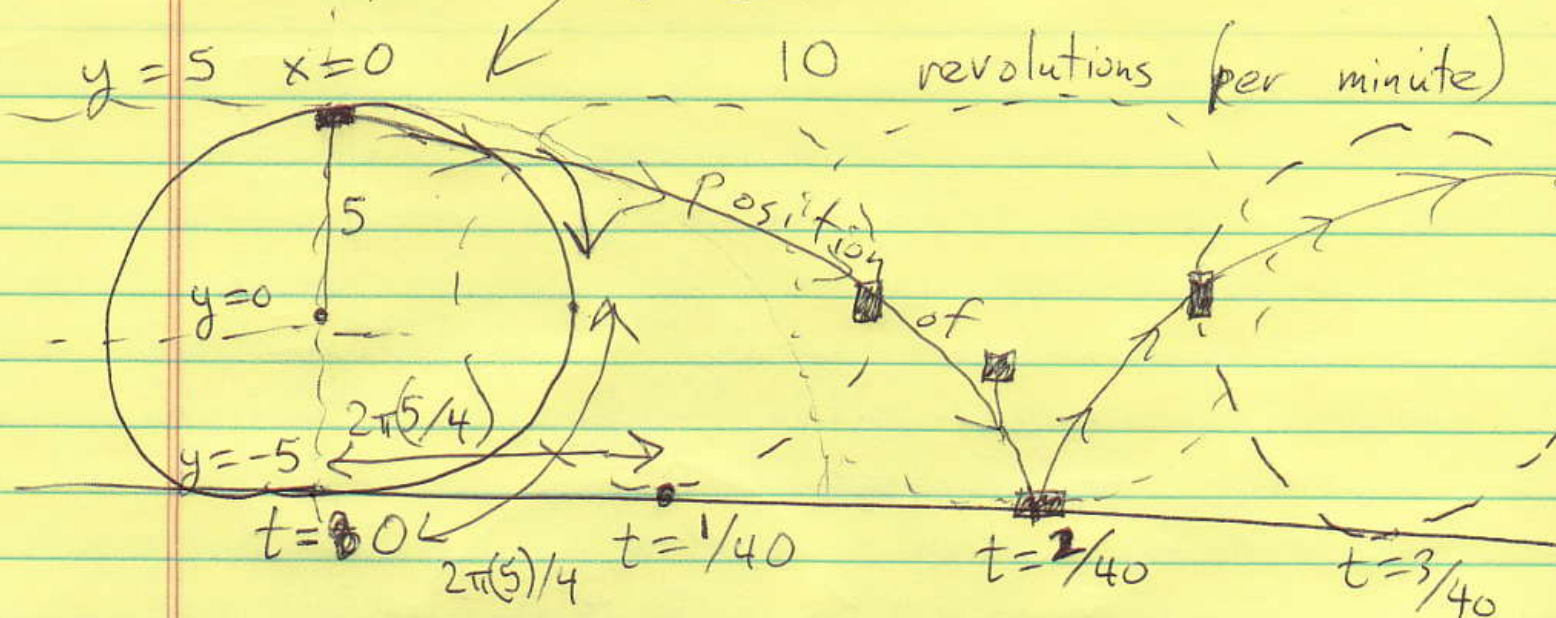 y = 5 x = 0
10 revolutions (per minute)
5
Position
y=0
of
2π(5/4)
y=-5
t=0
t=1/40
t=2/40
t=3/40
2π(5)/4